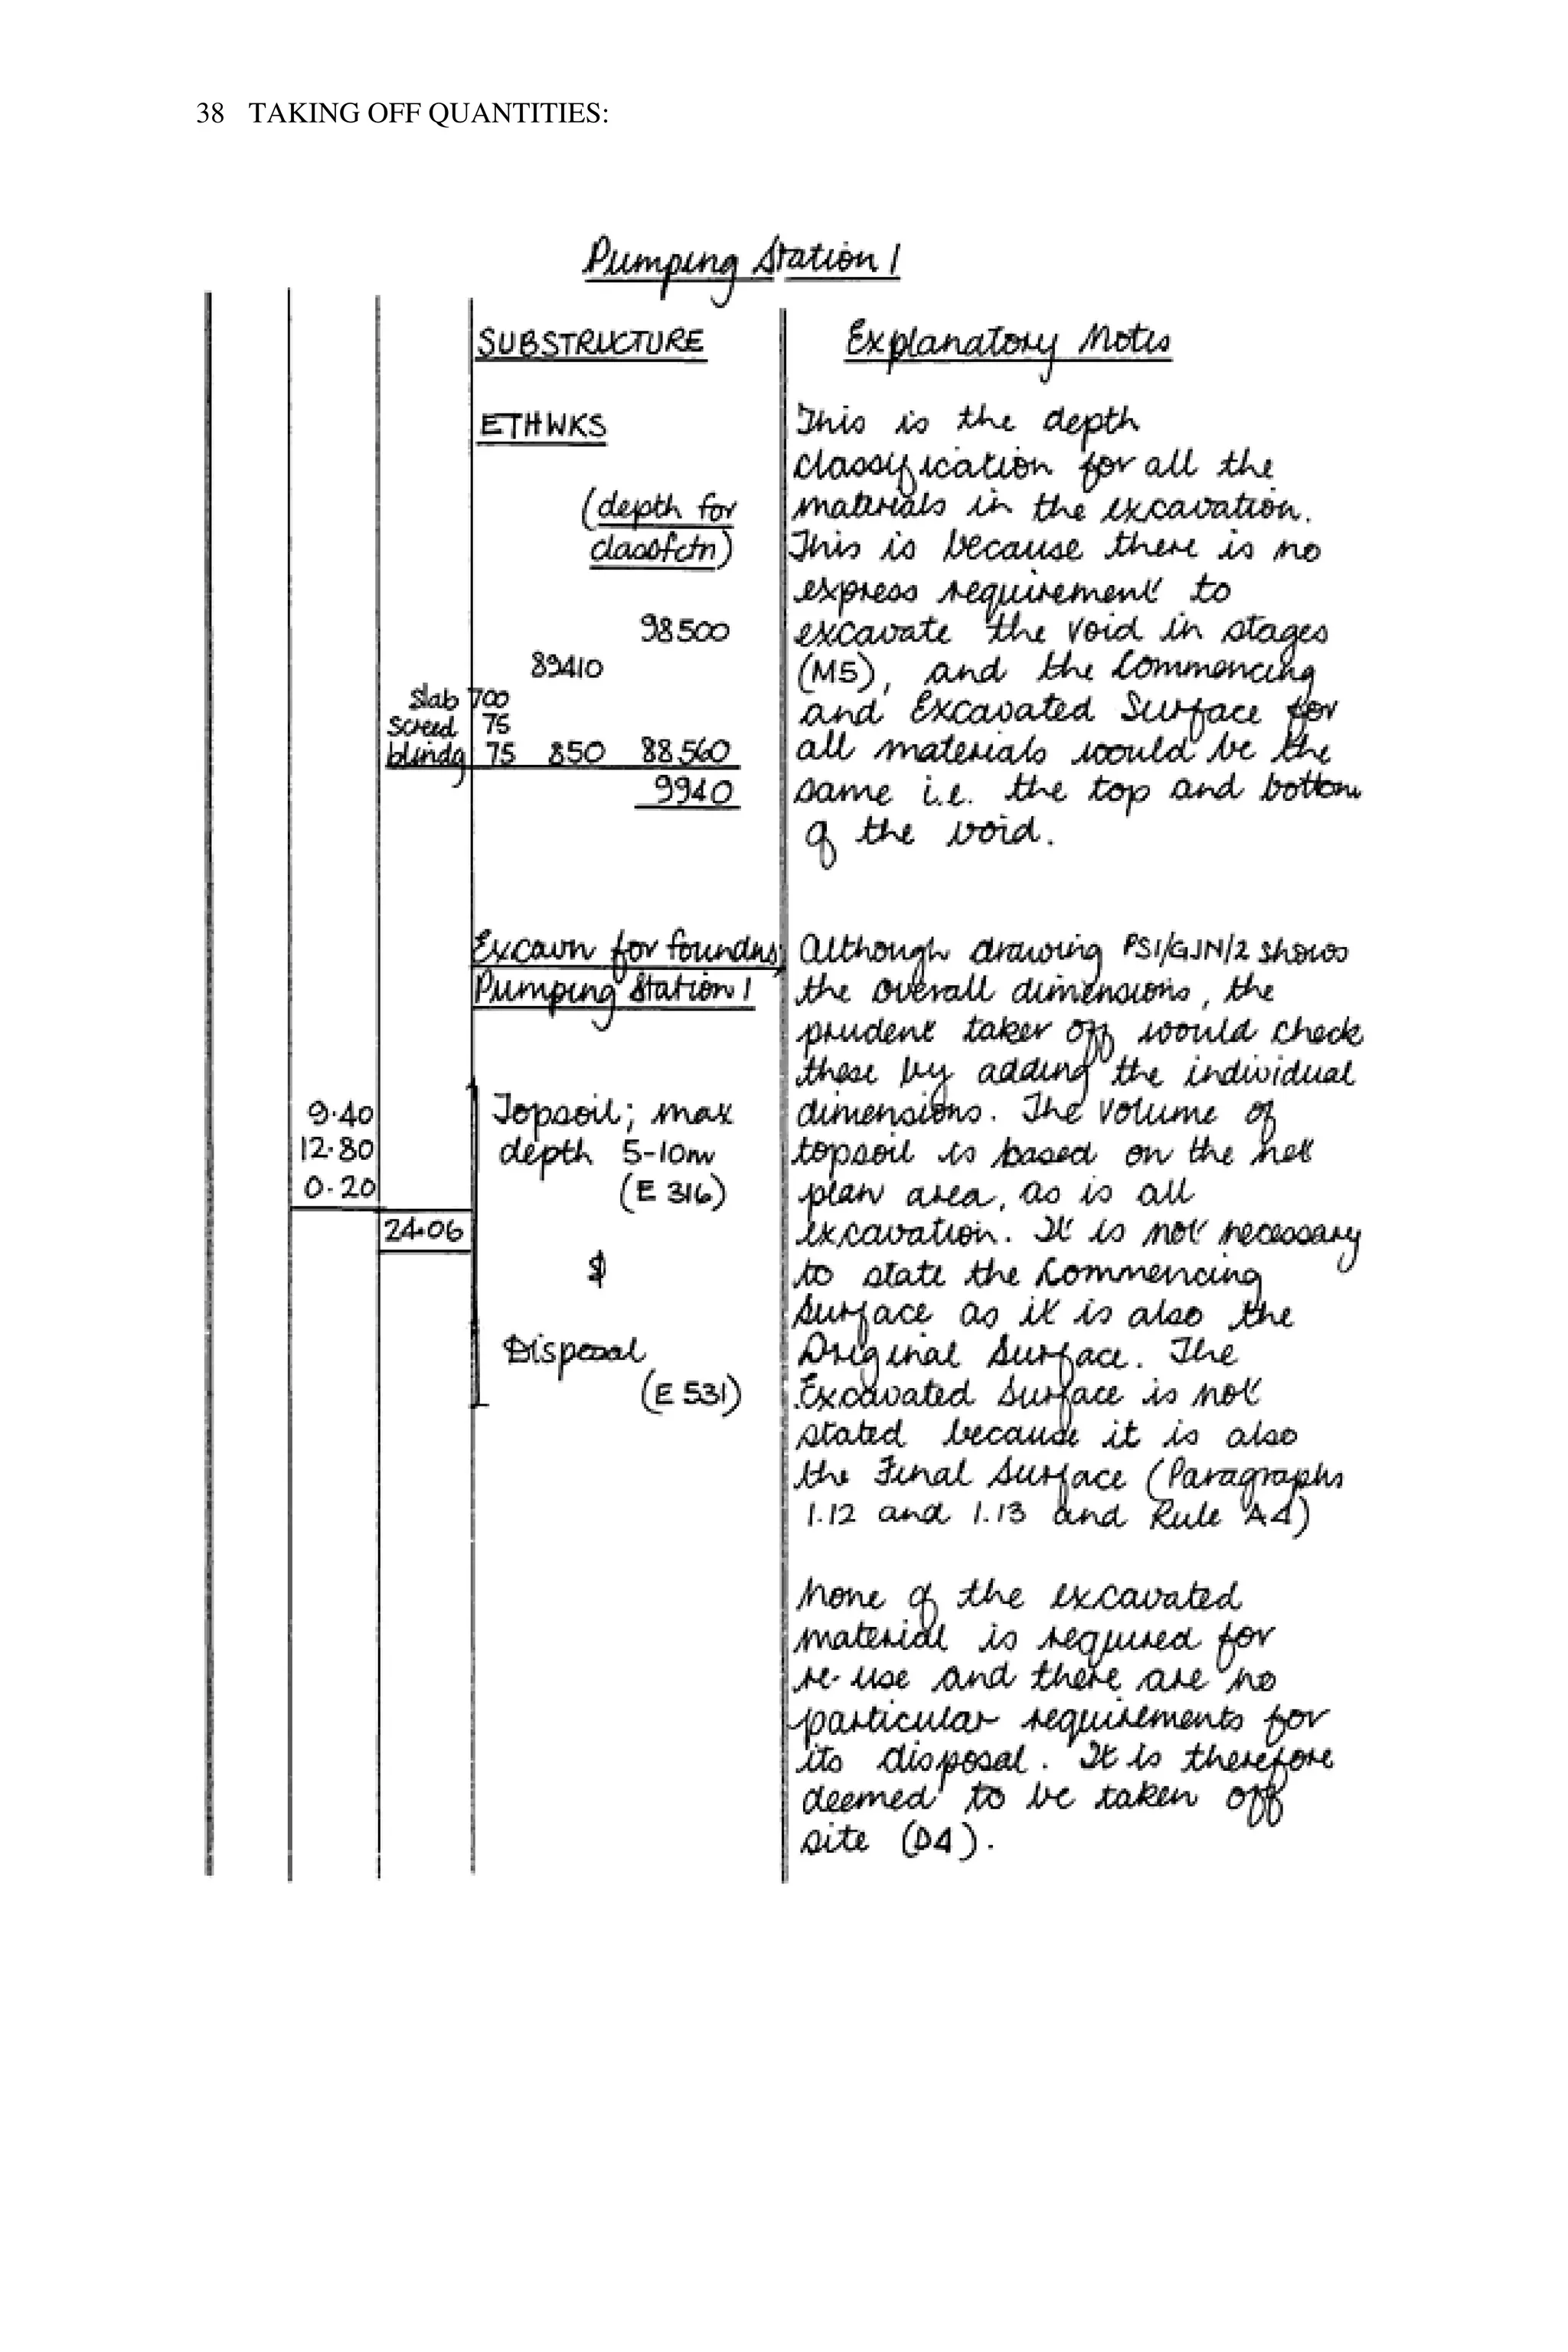 38 TAKING OFF QUANTITIES:
Pumping Station 1
SUBSTRUCTURE
ETHWKS
(depth for
classfctn)
98500
89410
Slab 700
screed 75
blindg 75 850 88560
9940
Excavn for foundns
Pumping Station 1
9.40
12.80
0.20
24.06
Topsoil; max
depth 5-10m
(E 316)
&
Disposal
(E 531)
Explanatory Notes
This is the depth
classification for all the
materials in the excavation.
This is because there is no
express requirement to
excavate the void in stages
(M5), and the Commencing
and Excavated Surface for
all materials would be the
same i.e. the top and bottom
of the void.
Although drawing PS1/GJN/2 shows
the overall dimensions, the
prudent taker off would check
these by adding the individual
dimensions. The volume of
topsoil is based on the net
plan area, as is all
excavation. It is not necessary
to state the Commencing
Surface as it is also the
Original Surface. The
Excavated Surface is not
stated because it is also
the Final Surface (Paragraphs
1.12 and 1.13 and Rule A4)
None of the excavated
material is required for
re-use and there are no
particular requirements for
its disposal. It is therefore
deemed to be taken off
site (D4).